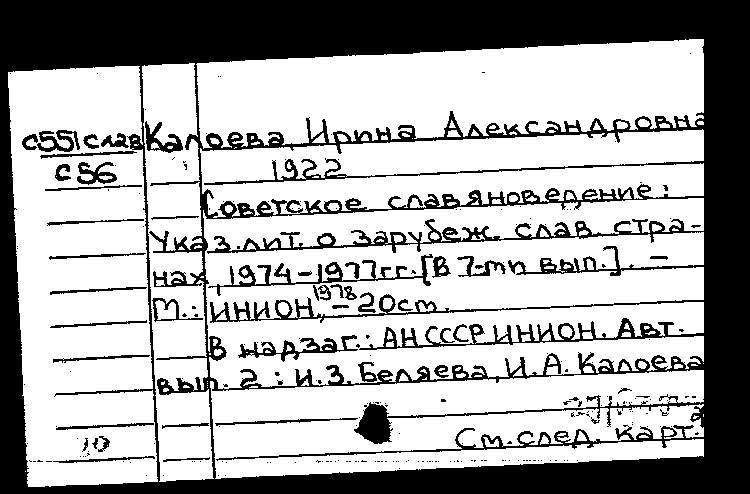 С551слав Калоева, Ирина Александровна
С56 1922
Советское славяноведение:
Указ.лит. о зарубеж. слав. стра-
нах, 1974-1977гг. [В 7-ми вып.]. -
М.: ИНИОН, 1978 -20cm.
В надзаг.: АН СССР ИНИОН. Авт.
вып. 2: И.З. Беляева, И.А. Калоева
См. след. карт.
10